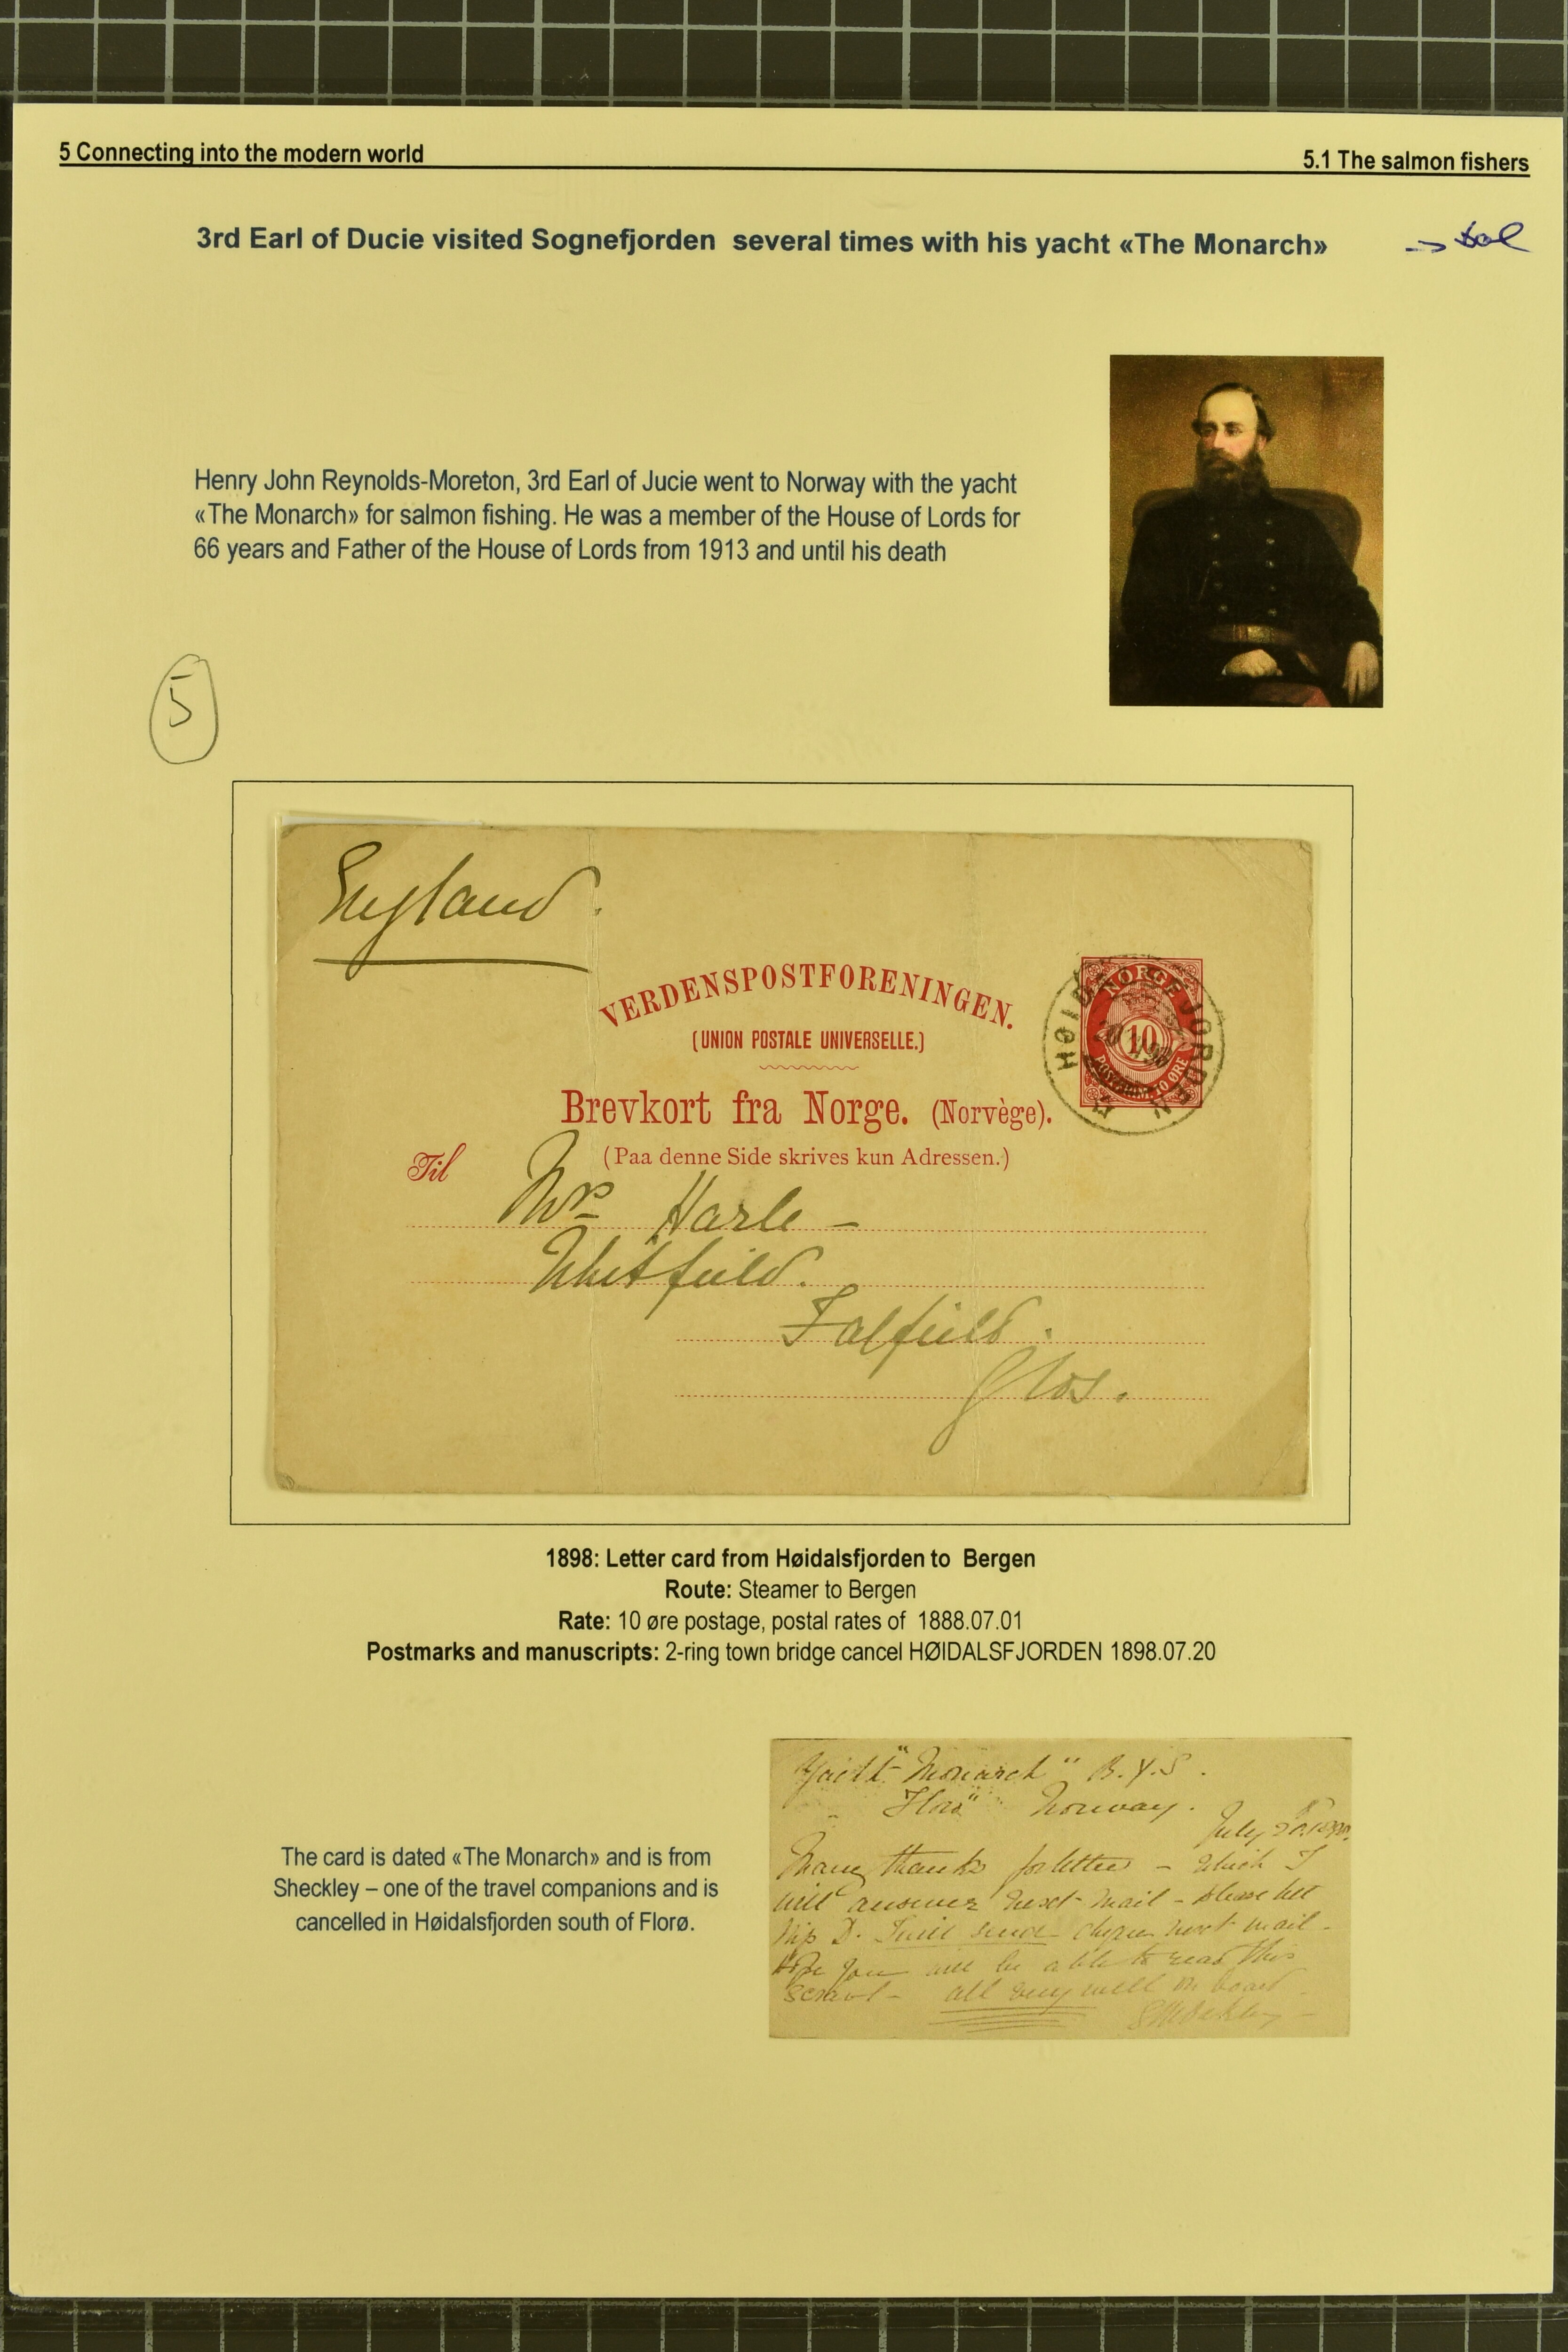 5 Connecting into the modern world 5.1 The salmon fishers
3rd Earl of Ducie visited Sognefjorden several times with his yacht «The Monarch»
Henry John Reynolds-Moreton, 3rd Earl of Jucie went to Norway with the yacht
«The Monarch» for salmon fishing. He was a member of the House of Lords for
66 years and Father of the House of Lords from 1913 and until his death
5
England.
VERDENSPOSTFORENINGEN.
(UNION POSTALE UNIVERSELLE.)
NORGE
10
POSTFRIM. 10 ØRE
Brevkort fra Norge. (Norvège).
(Paa denne Side skrives kun Adressen.)
Til
Mrs Harle –
Whitfield.
Falfield.
Glos.
1898: Letter card from Høidalsfjorden to Bergen
Route: Steamer to Bergen
Rate: 10 øre postage, postal rates of 1888.07.01
Postmarks and manuscripts: 2-ring town bridge cancel HØIDALSFJORDEN 1898.07.20
The card is dated «The Monarch» and is from
Sheckley – one of the travel companions and is
cancelled in Høidalsfjorden south of Florø.
Yacht "Monarch" R.Y.S.
Norway.
July 20.
Many thanks for letters – which I
will answer next mail – please let
D. I will send next mail –
Hope you will be able to read this
scrawl – all very well on board